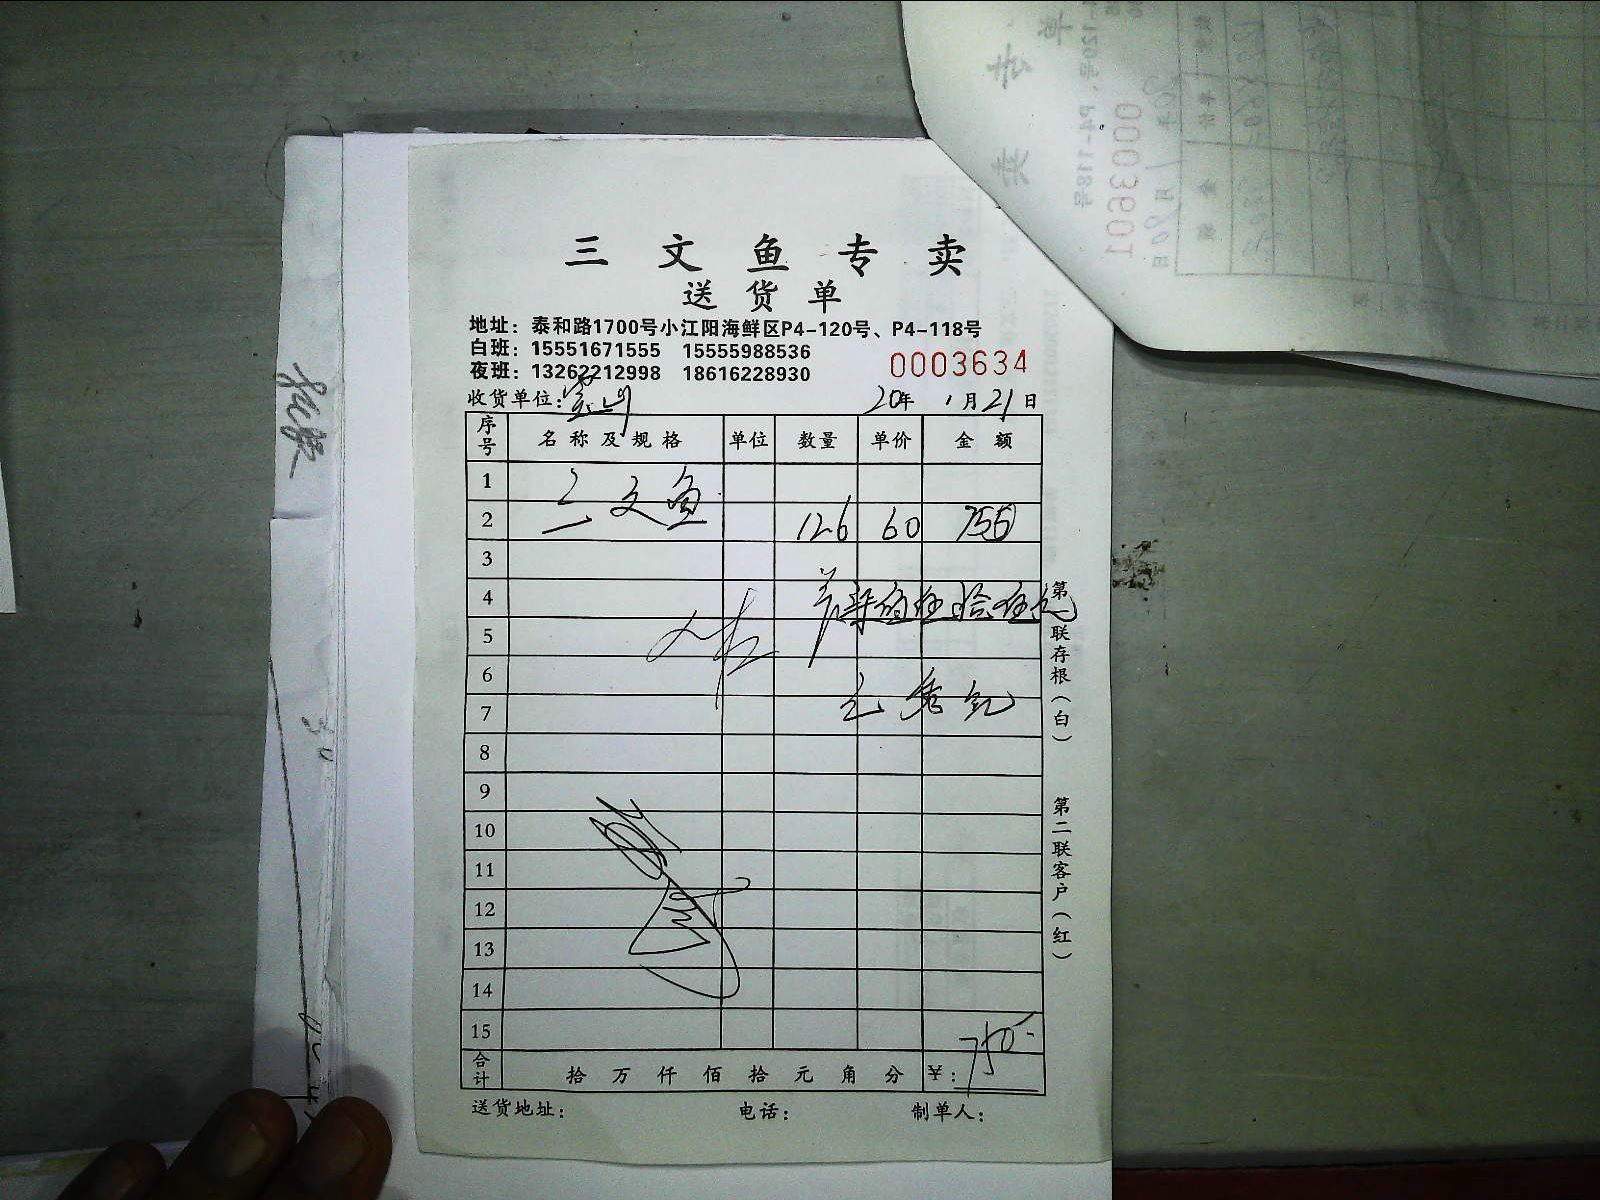 三文鱼专卖
送货单
地址：泰和路1700号小江阳海鲜区P4-120号、P4-118号
白班：15551671555 15555988536
0003634
夜班：13262212998 18616228930
收货单位： 20年 1月21日
序号 名称及规格 单位 数量 单价 金额
1 三文鱼
2 126 60 756
3
4
5
6
7
8
9
10
11
12
13
14
15
合计 拾万仟佰拾元角分 ¥：750-
送货地址： 电话： 制单人：
第一联存根（白）
第二联客户（红）
0003601
P4-118号